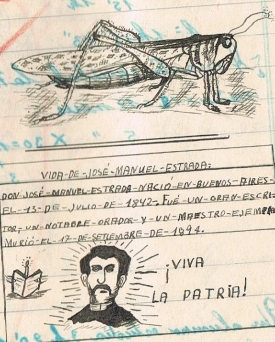 VIDA-DE-JOSÉ-MANUEL-ESTRADA:
DON-JOSÉ-MANUEL-ESTRADA-NACIÓ-EN-BUENOS-AIRES-
EL-13-DE-JULIO-DE-1842-FUÉ-UN-GRAN-ESCRI-
TOR,-UN-NOTABRE-ORADOR-Y-UN-MAESTRO-EJEMPLAR
MURIÓ-EL-17-DE-SETIEMBRE-DE-1894.
¡VIVA
LA PATRIA!